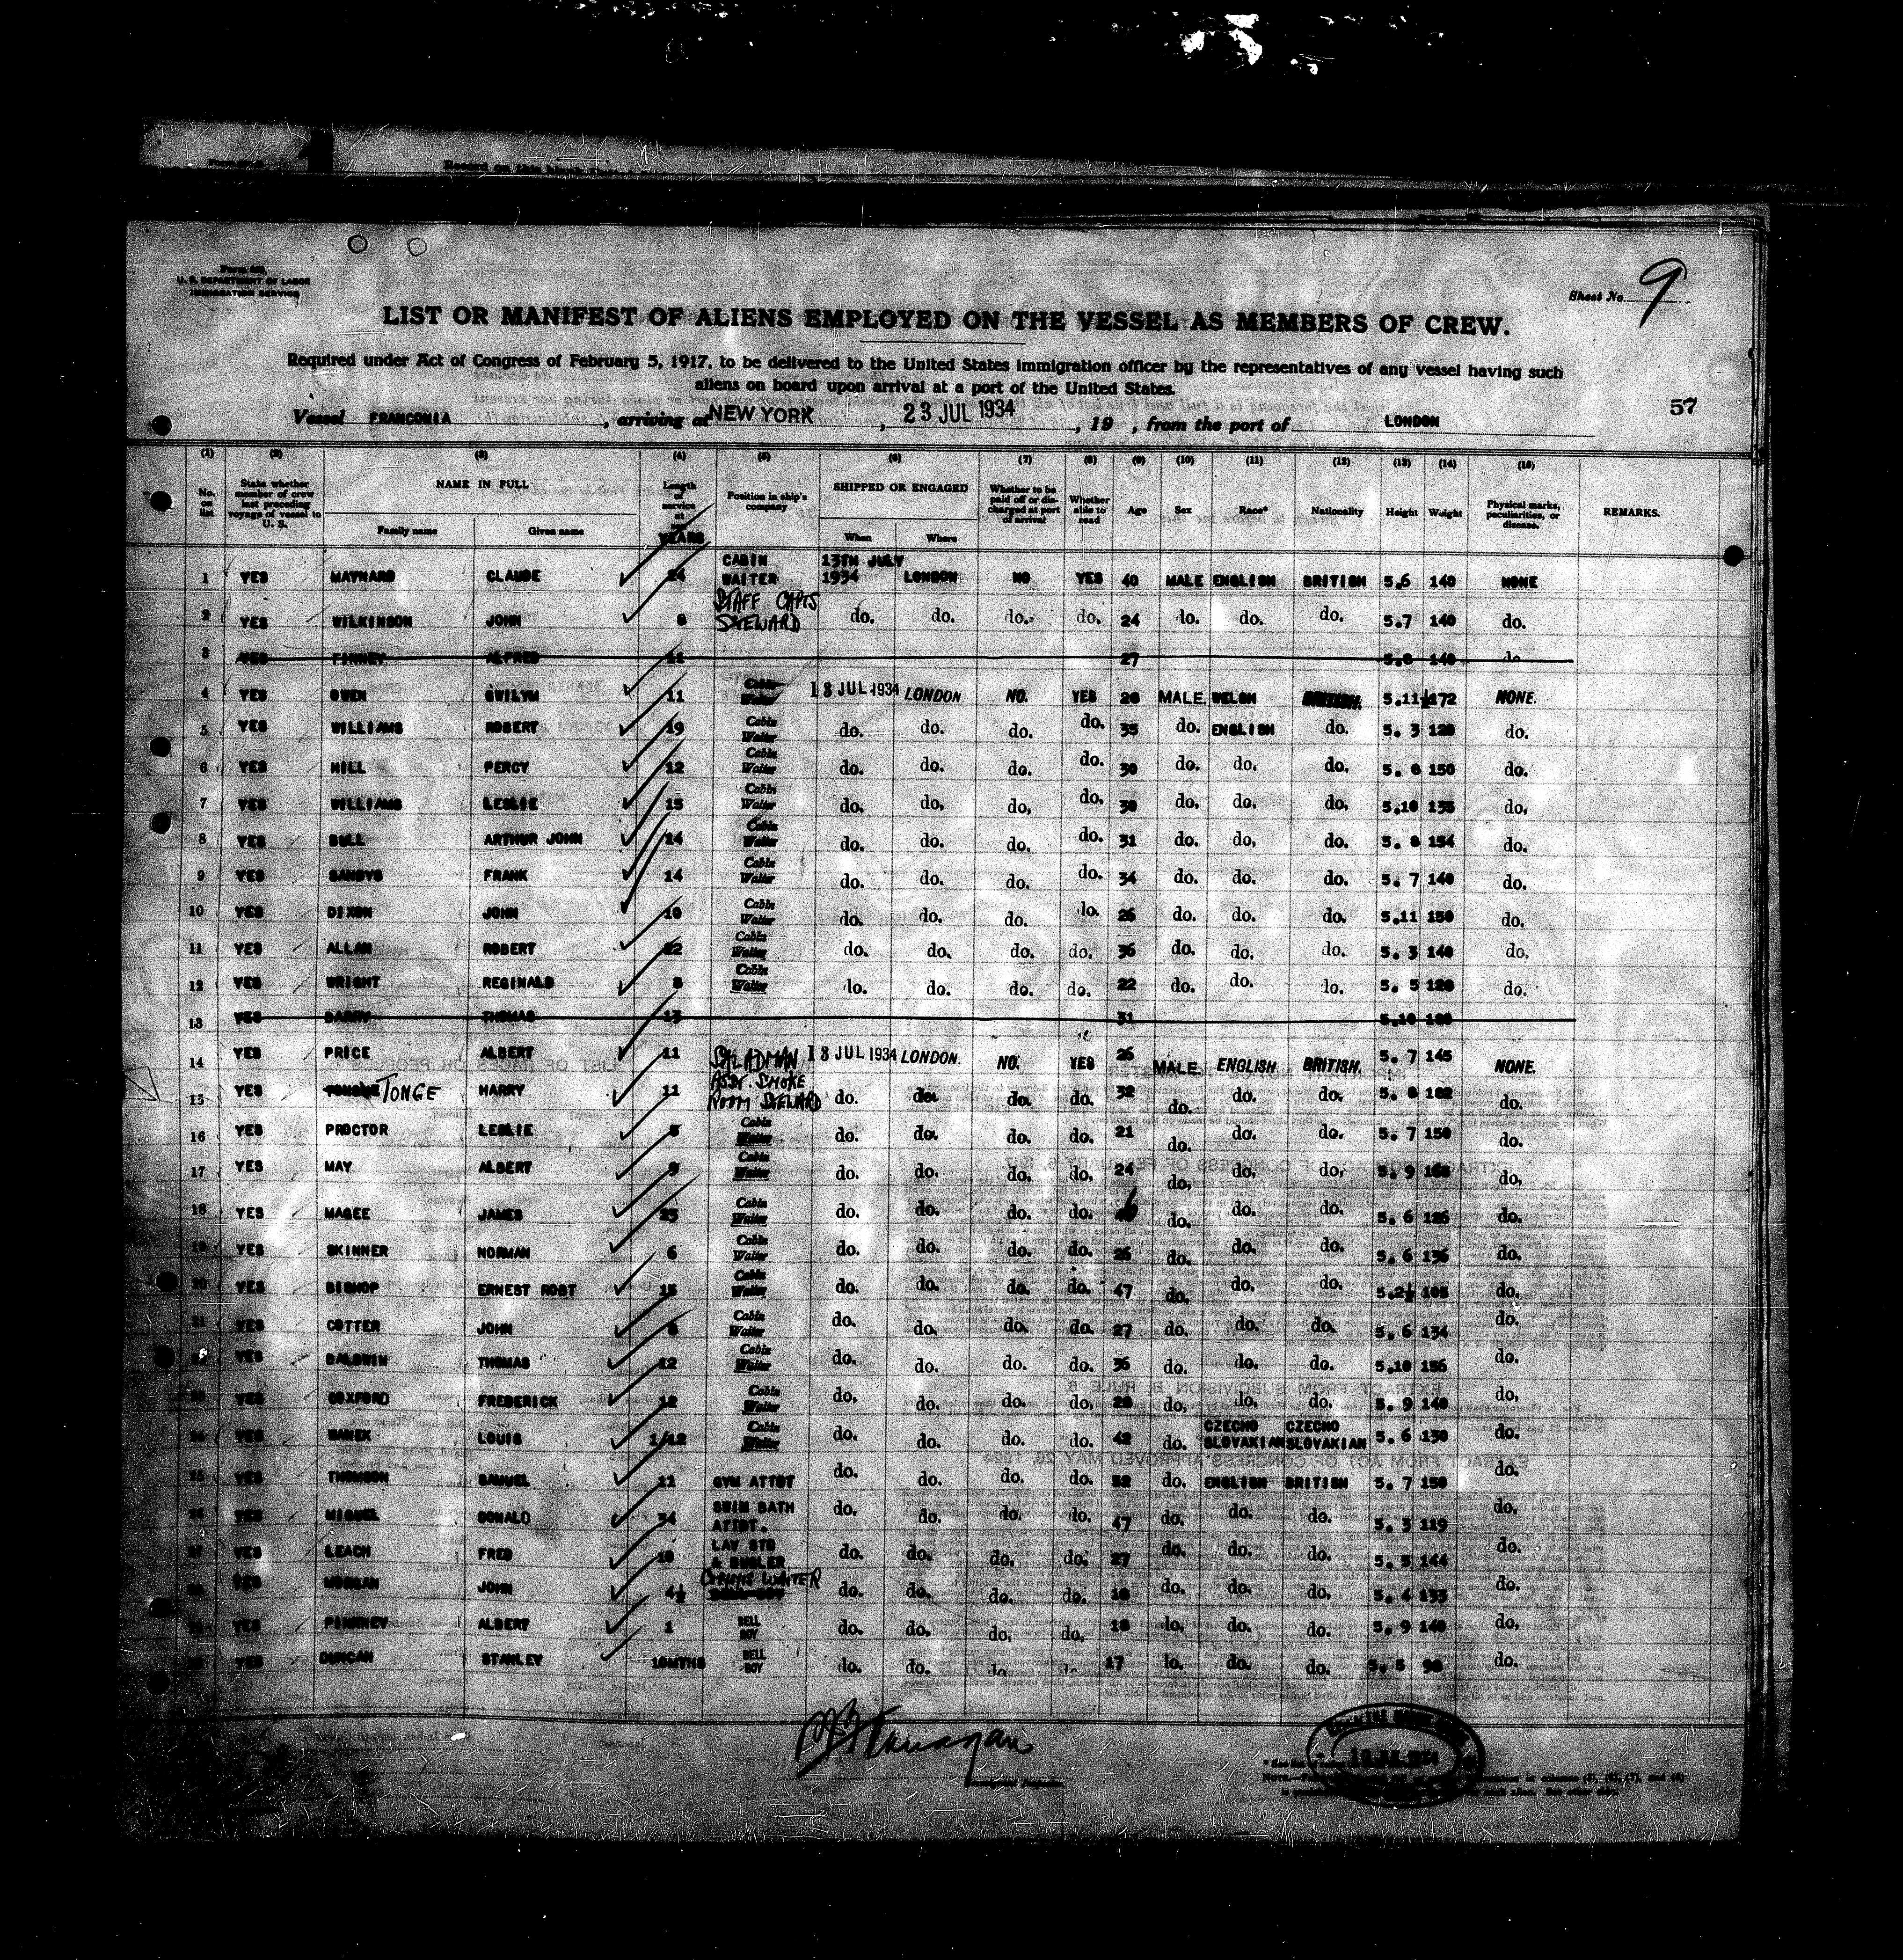 Form 689
U. S. DEPARTMENT OF LABOR
IMMIGRATION SERVICE
Sheet No. 9
LIST OR MANIFEST OF ALIENS EMPLOYED ON THE VESSEL AS MEMBERS OF CREW.
Required under Act of Congress of February 5, 1917, to be delivered to the United States immigration officer by the representatives of any vessel having such
aliens on board upon arrival at a port of the United States.
57
Vessel FRANCONIA, arriving at NEW YORK, 23 JUL 1934, 19 , from the port of LONDON
(1) (2) (3) (4) (5) (6) (7) (8) (9) (10) (11) (12) (13) (14) (15)
No. on list State whether member of crew last preceding voyage of vessel to U. S. NAME IN FULL Family name Given name Length of service at YEARS Position in ship's company SHIPPED OR ENGAGED When Where Whether to be paid off or discharged at port of arrival Whether able to read Age Sex Race* Nationality Height Weight Physical marks, peculiarities, or disease. REMARKS.
1 YES MAYNARD CLAUDE 24 CABIN WAITER 13TH JULY 1934 LONDON NO YES 40 MALE ENGLISH BRITISH 5.6 140 NONE
2 YES WILKINSON JOHN 8 STAFF CAPTS STEWARD do. do. do. do. 24 do. do. do. 5.7 140 do.
3 YES FINNEY ALFRED 11 27 5.8 140 do
4 YES OWEN GWILYM 11 Cabin Waiter 13 JUL 1934 LONDON NO. YES 28 MALE. WELSH BRITISH. 5.11½ 172 NONE.
5 YES WILLIAMS ROBERT 19 Cabin Waiter do. do. do. do. 35 do. ENGLISH do. 5. 3 120 do.
6 YES HILL PERCY 12 Cabin Waiter do. do. do. do. 30 do. do. do. 5. 8 150 do.
7 YES WILLIAMS LESLIE 15 Cabin Waiter do. do. do. do. 30 do. do. do. 5.10 135 do.
8 YES BULL ARTHUR JOHN 14 Cabin Waiter do. do. do. do. 31 do. do. do. 5. 8 154 do.
9 YES SANDYS FRANK 14 Cabin Waiter do. do. do. do. 34 do. do. do. 5. 7 140 do.
10 YES DIXON JOHN 10 Cabin Waiter do. do. do. do. 26 do. do. do. 5.11 150 do.
11 YES ALLAN ROBERT 22 Cabin Waiter do. do. do. do. 36 do. do. do. 5. 3 140 do.
12 YES WRIGHT REGINALD 8 Cabin Waiter do. do. do. do. 22 do. do. do. 5. 5 128 do.
13 YES BARRY THOMAS 13 31 5.10
14 YES PRICE ALBERT 11 SALADMAN 13 JUL 1934 LONDON. NO. YES 26 MALE. ENGLISH BRITISH. 5. 7 145 NONE.
15 YES TONGE HARRY 11 ASST. SMOKE ROOM STEWARD do. do. do. do. 32 do. do. do. 5. 8 182 do.
16 YES PROCTOR LESLIE 5 Cabin Waiter do. do. do. do. 21 do. do. do. 5. 7 150 do.
17 YES MAY ALBERT 9 Cabin Waiter do. do. do. do. 24 do. do. do. 5. 9 168 do.
18 YES MAGEE JAMES 25 Cabin Waiter do. do. do. do. do. do. do. 5. 6 126 do.
19 YES SKINNER NORMAN 6 Cabin Waiter do. do. do. do. 26 do. do. do. 5. 6 136 do.
20 YES BISHOP ERNEST ROBT 15 Cabin Waiter do. do. do. do. 47 do. do. do. 5.2½ 105 do.
21 YES COTTER JOHN 6 Cabin Waiter do. do. do. do. 27 do. do. do. 5. 6 134 do.
22 YES BALDWIN THOMAS 12 Cabin Waiter do. do. do. do. 36 do. do. do. 5.10 156 do.
23 YES COXFORD FREDERICK 12 Cabin Waiter do. do. do. do. 28 do. do. do. 5. 9 140 do.
24 YES LOUIS 1/12 Cabin Waiter do. do. do. do. 42 do. CZECHO SLOVAKIAN CZECHO SLOVAKIAN 5. 6 130 do.
25 YES THOMSON SAMUEL 11 GYM ATTDT do. do. do. do. 52 do. ENGLISH BRITISH 5. 7 150 do.
26 YES MIGUEL DONALD 34 SWIM BATH ATTDT. do. do. do. do. 47 do. do. do. 5. 3 119 do.
27 YES LEACH FRED 10 LAV STD & BUGLER do. do. do. do. 27 do. do. do. 5. 5 144 do.
28 YES MORGAN JOHN 4½ WAITER do. do. do. do. 18 do. do. do. 5. 4 133 do.
29 YES ALBERT 1 BELL BOY do. do. do. do. 18 do. do. do. 5. 9 140 do.
YES DUNCAN STANLEY 10MTHS BELL BOY do. do. do. do. 17 do. do. do. 5. 5 98 do.
Flanagan